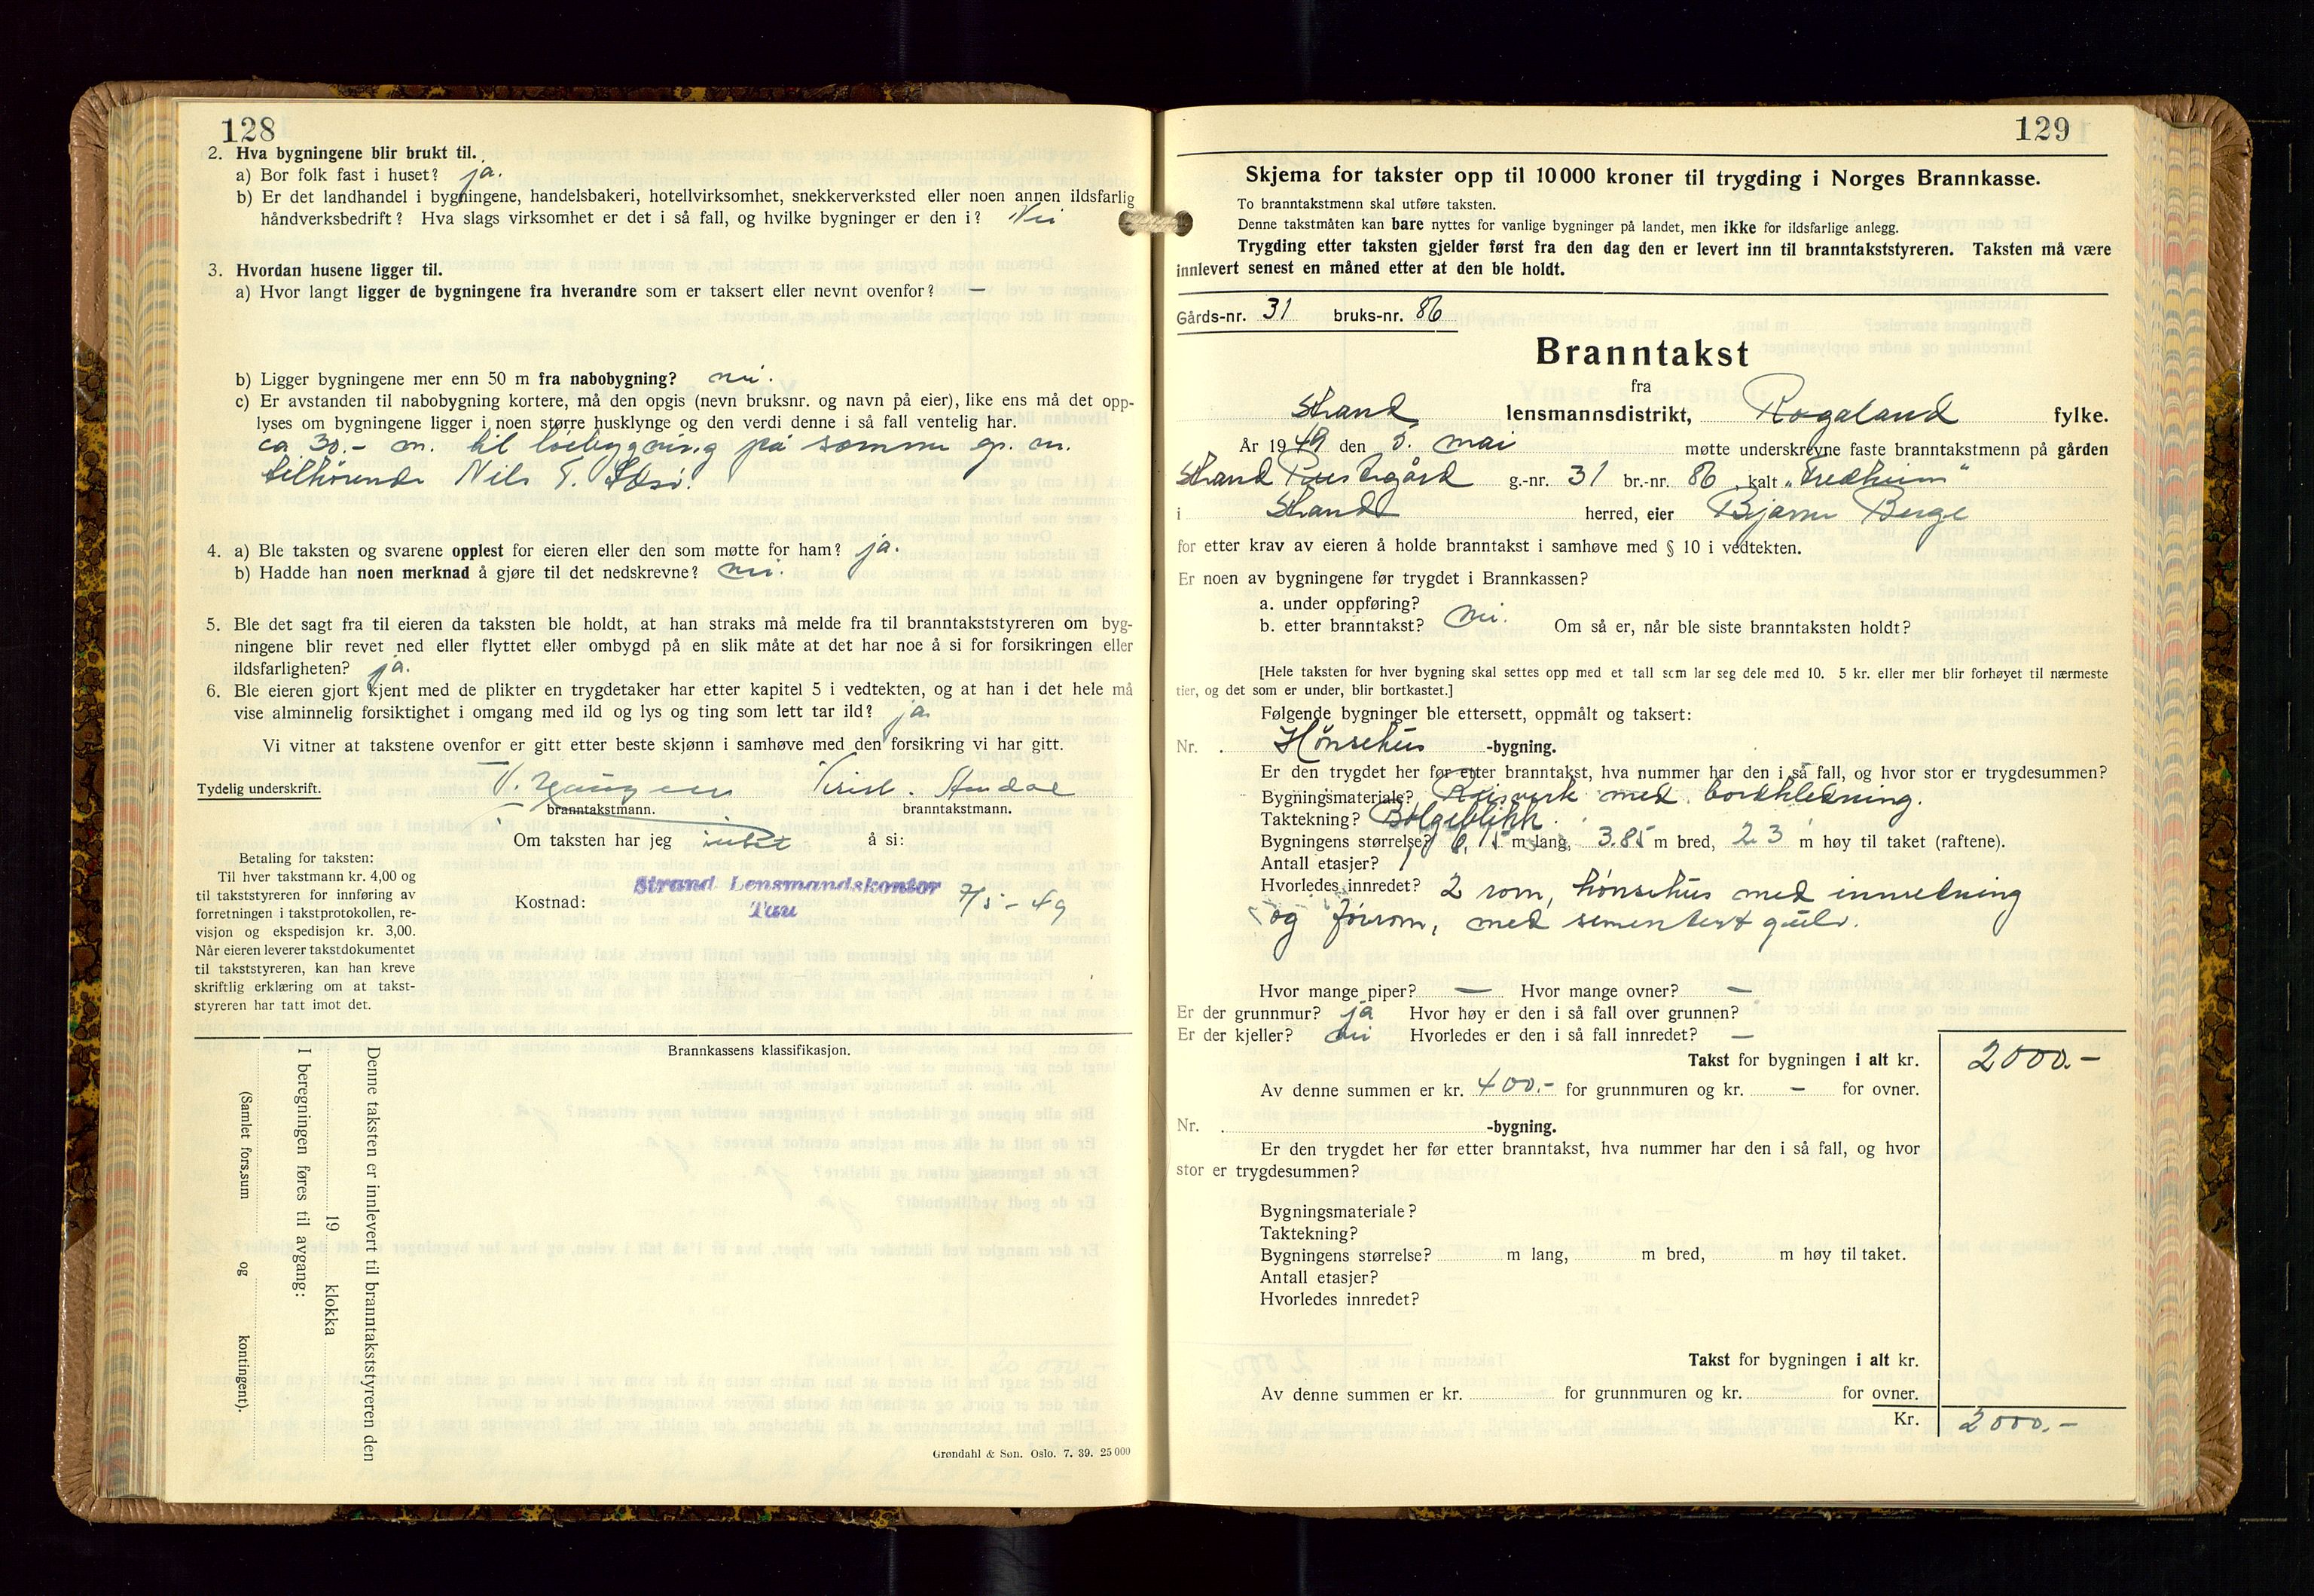 128
2. Hva bygningene blir brukt til.
a) Bor folk fast i huset? ja.
b) Er det landhandel i bygningene, handelsbakeri, hotellvirksomhet, snekkerverksted eller noen annen ildsfarlig
håndverksbedrift? Hva slags virksomhet er det i så fall, og hvilke bygninger er den i? Nei
3. Hvordan husene ligger til.
a) Hvor langt ligger de bygningene fra hverandre som er taksert eller nevnt ovenfor? —
b) Ligger bygningene mer enn 50 m fra nabobygning? nei.
c) Er avstanden til nabobygning kortere, må den opgis (nevn bruksnr. og navn på eier), like ens må det opp-
lyses om bygningene ligger i noen større husklynge og den verdi denne i så fall ventelig har.
ca 30.- m. til løebyggning på samme gr. nr.
tilhørende Nils T.
4. a) Ble taksten og svarene opplest for eieren eller den som møtte for ham? ja.
b) Hadde han noen merknad å gjøre til det nedskrevne? nei.
5. Ble det sagt fra til eieren da taksten ble holdt, at han straks må melde fra til branntakststyreren om byg-
ningene blir revet ned eller flyttet eller ombygd på en slik måte at det har noe å si for forsikringen eller
ildsfarligheten? ja.
6. Ble eieren gjort kjent med de plikter en trygdetaker har etter kapitel 5 i vedtekten, og at han i det hele må
vise alminnelig forsiktighet i omgang med ild og lys og ting som lett tar ild? ja
Vi vitner at takstene ovenfor er gitt etter beste skjønn i samhøve med den forsikring vi har gitt.
Tydelig underskrift. V. Haugen
branntakstmann. branntakstmann.
Om taksten har jeg intet å si:
Betaling for taksten:
Til hver takstmann kr. 4,00 og
til takststyreren for innføring av
forretningen i takstprotokollen, re-
visjon og ekspedisjon kr. 3,00.
Når eieren leverer takstdokumentet
til takststyreren, kan han kreve
skriftlig erklæring om at takst-
styreren har tatt imot det.
Kostnad:
Strand Lensmandskontor
Tau
7/5 - 49
Brannkassens klassifikasjon.
Denne taksten er innlevert til branntakststyreren den
19 klokka
I beregningen føres til avgang:
(Samlet fors.sum og kontingent).
Grøndahl & Søn. Oslo. 7. 39. 25 000
129
Skjema for takster opp til 10 000 kroner til trygding i Norges Brannkasse.
To branntakstmenn skal utføre taksten.
Denne takstmåten kan bare nyttes for vanlige bygninger på landet, men ikke for ildsfarlige anlegg.
Trygding etter taksten gjelder først fra den dag den er levert inn til branntakststyreren. Taksten må være
innlevert senest en måned etter at den ble holdt.
Gårds-nr. 31 bruks-nr. 86
Branntakst
fra
Strand lensmannsdistrikt, Rogaland fylke.
År 1949 den 5. mai møtte underskrevne faste branntakstmenn på gården
Strand Prestegård g.-nr. 31 br.-nr. 86 kalt „Fredheim"
i Strand herred, eier Bjarne Berge
for etter krav av eieren å holde branntakst i samhøve med § 10 i vedtekten.
Er noen av bygningene før trygdet i Brannkassen?
a. under oppføring?
b. etter branntakst? nei. Om så er, når ble siste branntaksten holdt?
[Hele taksten for hver bygning skal settes opp med et tall som lar seg dele med 10. 5 kr. eller mer blir forhøyet til nærmeste
tier, og det som er under, blir bortkastet.]
Følgende bygninger ble ettersett, oppmålt og taksert:
Nr. Hønsehus -bygning.
Er den trygdet her før etter branntakst, hva nummer har den i så fall, og hvor stor er trygdesummen?
Bygningsmateriale? Reisverk med bordkledning.
Taktekning? Bølgeblikk.
Bygningens størrelse? 6,15 m lang, 3.85 m bred, 2.3 m høy til taket (raftene).
Antall etasjer? 1
Hvorledes innredet? 2 rom, hønsehus med innredning
og fôrrom, med sementert gulv.
Hvor mange piper? — Hvor mange ovner? —
Er der grunnmur? ja Hvor høy er den i så fall over grunnen?
Er der kjeller? nei Hvorledes er den i så fall innredet? —
Takst for bygningen i alt kr. 2000.-
Av denne summen er kr. 400.- for grunnmuren og kr. - for ovner.
Nr. -bygning.
Er den trygdet her før etter branntakst, hva nummer har den i så fall, og hvor
stor er trygdesummen?
Bygningsmateriale?
Taktekning?
Bygningens størrelse? m lang, m bred, m høy til taket.
Antall etasjer?
Hvorledes innredet?
Takst for bygningen i alt kr.
Av denne summen er kr. for grunnmuren og kr. for ovner.
Kr. 2000.-